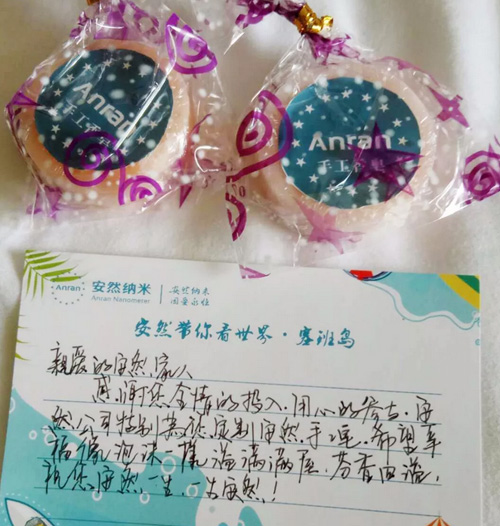 Anran
手工
Anran
手工
Anran
安然纳米
Anran Nanometer
安然纳米
因爱永恒
安然带你看世界·塞班岛
亲爱的安然家人
感谢您全情的投入,用心的参与,安
然公司特别为您定制安然手工皂,希望幸
福像泡沫一样溢满满屋,芬香四溢,
祝您安然一生,一生安然!